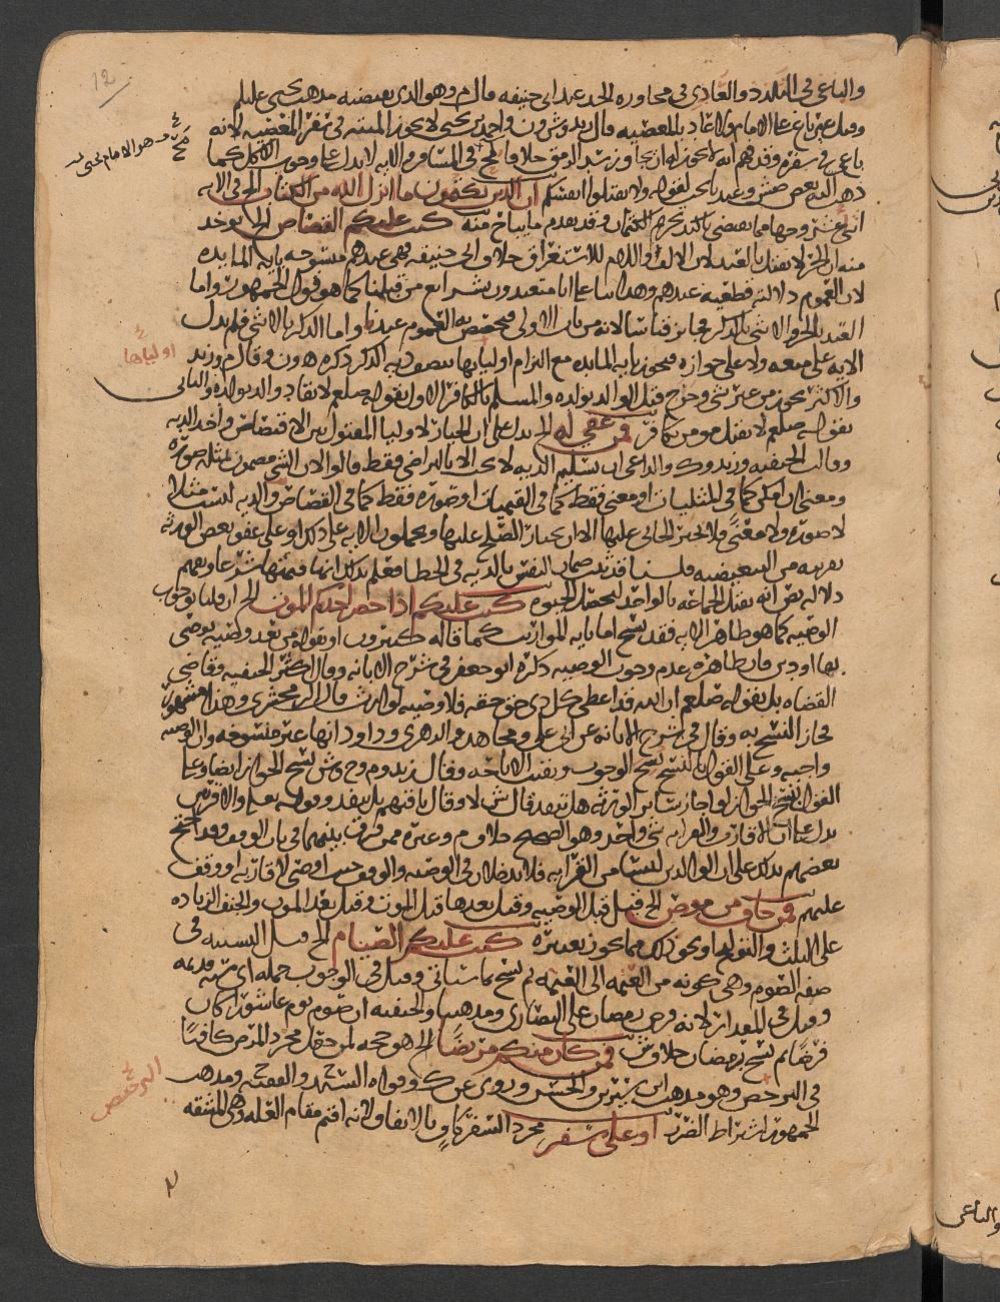 12
والباغي في التلذذ والعادي في مجاوزه الحد عند ابي حنيفه قال م وهو الذي يقتضيه مذهب يحيى عليلم
وقيل غير باغ على الامام ولا عاد بالمعصيه قال زيد وش ون واحد بن يحيى لا يجوز الميته في سفر المعصيه لانه
باغ في سفره
ذهب اليه بعض ولا تقتلوا انفسكم ان الذين يكتمون ما انزل الله من الكتاب الخ في الايه
وقد تقدم ما يباح منه كتب عليكم القصاص الخ يوخذ
منه ان الحر لا يقتل بالعبد لان الالف واللام للاستغراق خلاف ابي حنيفه فهي عندهم منسوخه بايه المايده
لان العموم دلالته قطعيه عندهم وهذا بنا على انا متعبدون بشرايع من قبلنا كما هو قول الجمهور واما
العبد بالحر والانثى بالذكر فجايز قياسا لانه من باب الاولى فيخصص به العموم عندنا واما الذكر بالانثى فلم تدل
الايه على منعه ولا على جوازه فيجوز بايه المايده مع التزام اوليايها نصف ديه الذكر ذكره هـ ون وقال م وزيد
والاكثر يجوز من غير شي وخرج قتل الوالد بولده والمسلم بالكافر الاول بقوله صلعم لا يقاد والد بولده والثاني
بقوله صلعم لا يقتل مومن بكافر فمن عفي له الخ يدل على ان الخيار لاوليا المقتول بين الاقتصاص واخذ الديه
وقالت الحنفيه وزيد وك والداعي ان تسليم الديه لا يجب الا بالتراضي فقط قالوا لان الشي مضمون بمثله صوره
ومعنى ان امكن كما في المثليات او معنى فقط كما في القيميات او صوره فقط كما في القصاص والديه ليست مثلا
لا صوره ولا معنى فلا يجبر الجاني عليها الا ان يختار الصلح عليها ويحملون الايه على ذلك او على عفو بعض الورثه
بقرينه من التبعيضيه قلنا قد ثبت ضمان النفس بالديه في الخطا فعلم بذلك انها قيمتها شرعا ويعمم
دلاله نص انه يقتل الجماعه بالواحد لتحصل الحيوه كتب عليكم اذا حضر احدكم الموت الخ ان قلنا بوجوب
الوصيه كما هو ظاهر الايه فقد نسخ اما بايه المواريث كما قاله كثيرون او بقوله من بعد وصيه يوصي
بها او دين فان ظاهره عدم وجوب الوصيه ذكره ابو جعفر في شرح الابانه وقال اكثر الحنفيه وقاضي
القضاه بل بقوله صلعم ان الله قد اعطى كل ذي حق حقه فلا وصيه لوارث قال الزمخشري وهذا مشهور
فجاز النسخ به وقال في شرح الابانه عن ابي علي ومجاهد والزهري وداود انها غير منسوخه وان الوصيه
واجبه وعلى القول بالنسخ نسخ الوجوب وبقيت الاباحه وقال زيد وم وح وش نسخ الجواز ايضا وعلى
القول بنسخ الجواز لو اجازت ساير الورثه هل تنفذ قال ش لا وقال باقيهم بل ينفذ وقوله تعالى والاقربين
يدل على ان الاقارب والقرابه شي واحد وهو الصحيح خلاف م وغيره ممن فرق بينهما في باب الوقف وقد احتج
بعضهم بذلك على ان الوالدين ليسا من القرابه فلا يدخلان في الوصيه والوقف حيث اوصى لاقاربه او وقف
عليهم فمن خاف من موص الخ قيل قبل الوصيه وقيل بعدها قبل الموت وقيل بعد الموت والجنف الزياده
على الثلث والتوليج ونحو ذلك مما يجوز تغييره كتب عليكم الصيام الخ قيل التشبيه في
صفه الصوم وهي كونه من العتمه الى العتمه ثم نسخ بما سياتي وقيل في الوجوب جمله
وقيل في المقدار لانه فرض رمضان على النصارى ومذهبنا والحنفيه ان صوم يوم عاشورا كان
فرضا ثم نسخ برمضان خلاف ش فمن كان منكم مريضا الخ هو حجه لمن جعل مجرد المرض كافيا
في الترخص وهو مذهب ابن سيرين والحسن وروي عن ك وقواه السيد ح والفقيه ح ومذهب
الجمهور اشتراط الضرر او على سفر مجرد السفر كاف بالاتفاق لانه اقيم مقام العله وهي المشقه
مح هو الامام يحيى
اولياها
الترخص
والباغي